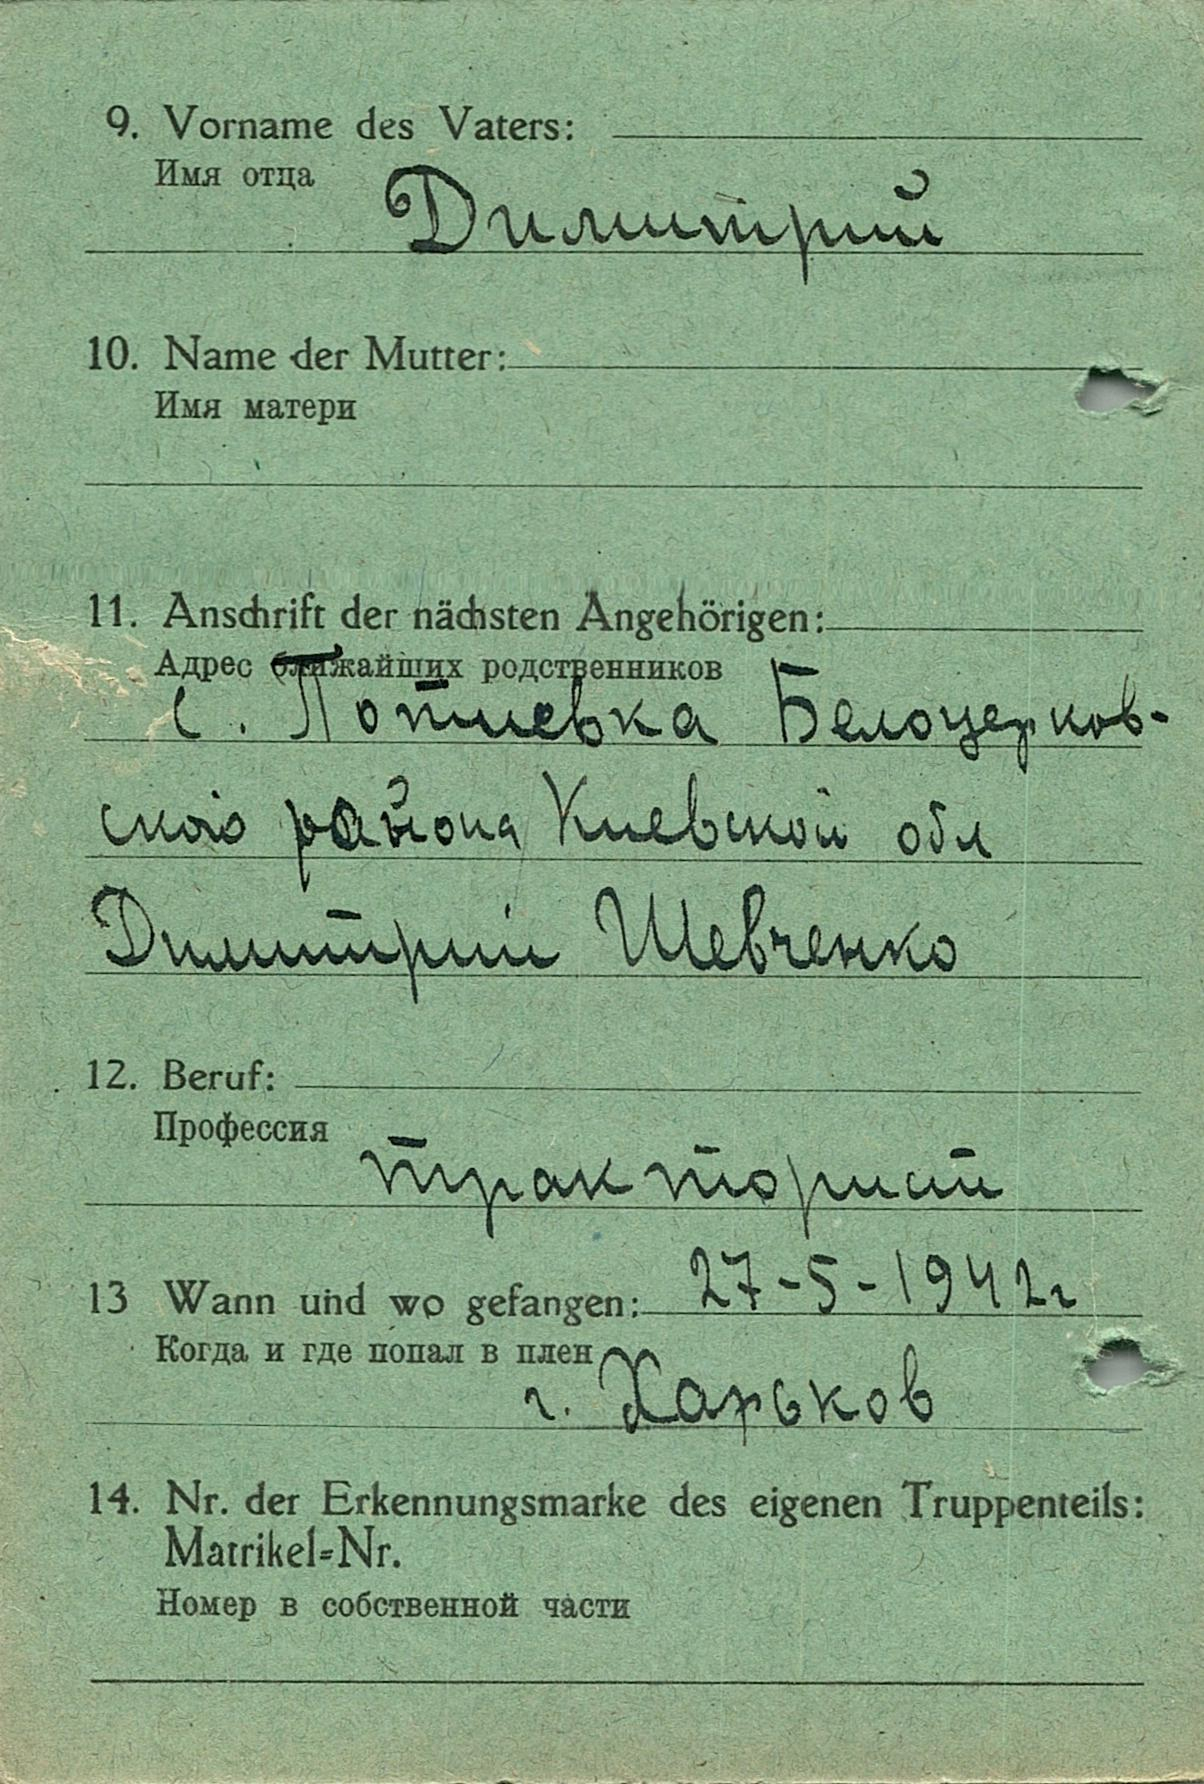 9. Vorname des Vaters:
Имя отца
Димитрий
10. Name der Mutter:
Имя матери
11. Anschrift der nächsten Angehörigen:
Адрес ближайших родственников
с. Потиевка Белоцерков-
ского района Киевской обл
Димитрий Шевченко
12. Beruf:
Профессия
тракторист
13 Wann und wo gefangen: 27-5-1942г
Когда и где попал в плен
г. Харьков
14. Nr. der Erkennungsmarke des eigenen Truppenteils:
Matrikel=Nr.
Номер в собственной части